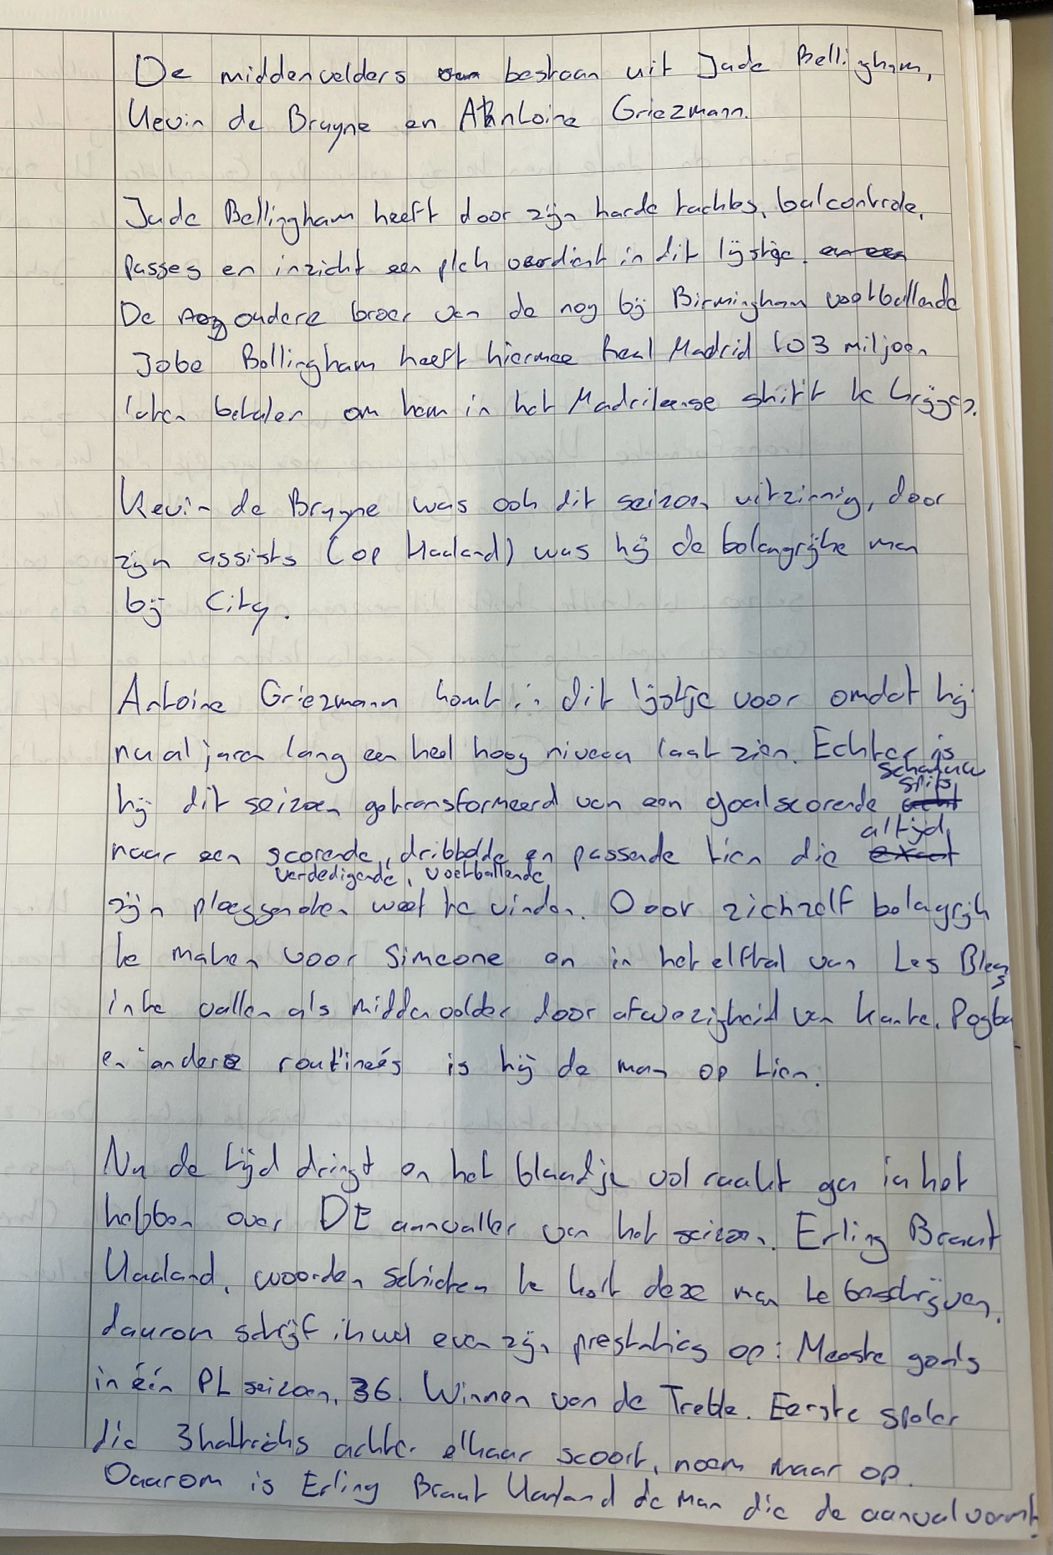 De middenvelders bestaan uit Jude Bellingham,
Kevin de Bruyne en Antoine Griezmann.
Jude Bellingham heeft door zijn harde tackles, balcontrole,
passes en inzicht een plek verdient in dit lijstje. en een
De nog oudere broer van de nog bij Birmingham voetballende
Jobe Bellingham heeft hiermee Real Madrid 103 miljoen
laten betalen om hem in het Madrileense shirt te krijgen.
Kevin de Bruyne was ook dit seizoen uitzinnig, door
zijn assists (op Haaland) was hij de belangrijke man
bij City.
Antoine Griezmann komt in dit lijstje voor omdat hij
nu al jaren lang een heel hoog niveau laat zien. Echter is
hij dit seizoen getransformeerd van een goalscorende schaduw spits
naar een scorende, dribbelde en passende tien die exact altijd
verdedigende, voetballende
zijn ploeggenoten weet te vinden. Door zichzelf belangrijk
te maken voor Simeone en in het elftal van Les Bleus
in te vallen als middenvelder door afwezigheid van Kante, Pogba
en andere routineés is hij de man op tien.
Nu de tijd dringt en het blaadje vol raakt ga ik het
hebben over DE aanvaller van het seizoen. Erling Braut
Haaland, woorden schieten te kort deze man te beschrijven,
daarom schrijf ik wel even zijn prestaties op: Meeste goals
in één PL seizoen, 36. Winnen van de Treble. Eerste speler
die 3 hattricks achter elkaar scoort, noem maar op.
Daarom is Erling Braut Haaland de man die de aanval vormt!